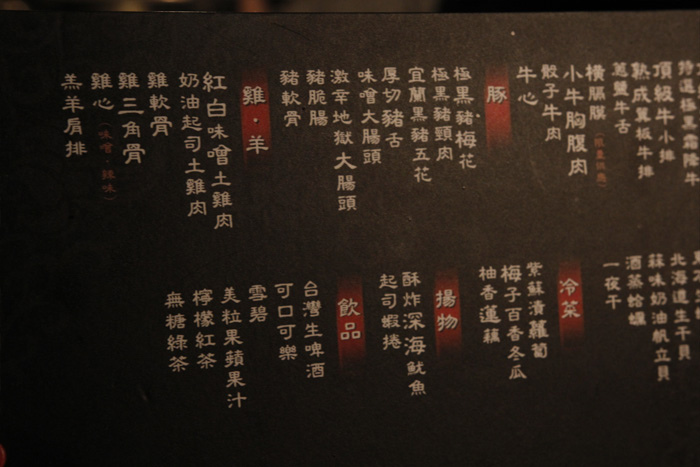 頂級牛小排
熟成翼板牛排
蔥鹽牛舌
橫膈膜
小牛胸腹肉
骰子牛肉
牛心
豚
極黑豬梅花
極黑豬頸肉
宜蘭黑豬五花
厚切豬舌
味噌大腸頭
激辛地獄大腸頭
豬脆腸
豬軟骨
雞·羊
紅白味噌土雞肉
奶油起司土雞肉
雞軟骨
雞三角骨
雞心(味噌·辣味)
羔羊肩排
北海道生干貝
蒜味奶油帆立貝
酒蒸蛤蠣
一夜干
冷菜
紫蘇漬蘿蔔
梅子百香冬瓜
柚香蓮藕
揚物
酥炸深海魷魚
起司蝦捲
飲品
台灣生啤酒
可口可樂
雪碧
美粒果蘋果汁
檸檬紅茶
無糖綠茶